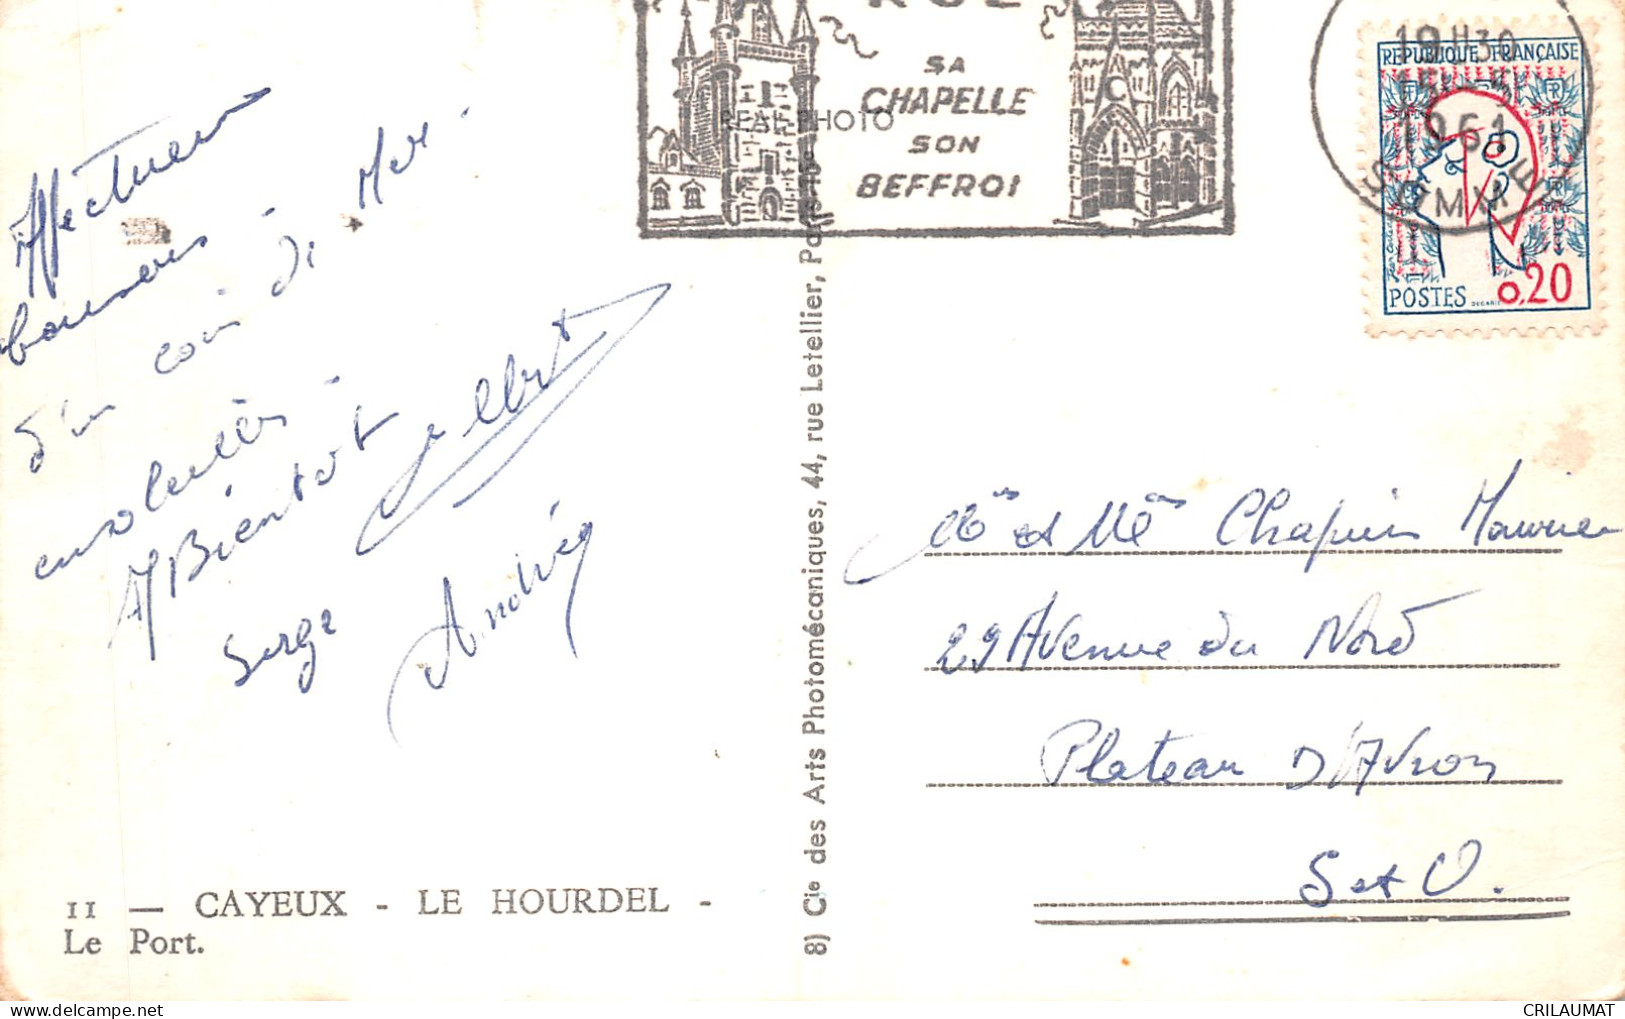 RUE
SA
CHAPELLE
SON
BEFFROI
REAL PHOTO
19H30
1961
SOMME
REPUBLIQUE FRANÇAISE
RF
RF
POSTES
DECARIS
0,20
Affectueux
bonsoirs
d'un coin de Mer
ensoleillé
A Bientôt
Gilbert
Serge
Andrée
Mr et Me Chapuis Maurice
29 Avenue du Nord
Plateau D'Avron
S et O.
8) Cie des Arts Photomécaniques, 44, rue Letellier, Paris-15e
11 — CAYEUX - LE HOURDEL -
Le Port.
CRILAUMAT